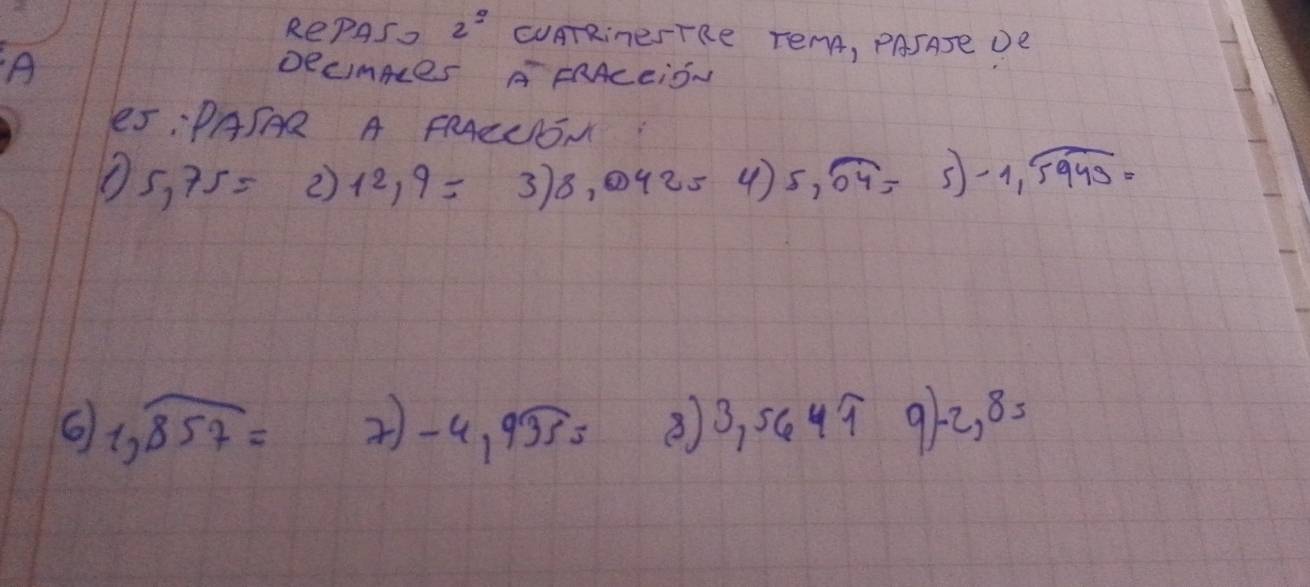 RePASO 2º CUATRIMESTRE TEMA, PASAJE De
A
DeCIMALES A FRACCIÓN
ej: PASAR A FRACCIÓN:
1) 5,75= 2) 12,9= 3) 8,0042= 4) 5,0̅4̅= 5) -1,5̅9̅4̅3̅=
6) 1,8̅5̅7̅= 7) -4,93̅5̅= 8) 3,5641̅ 9) -2,8=